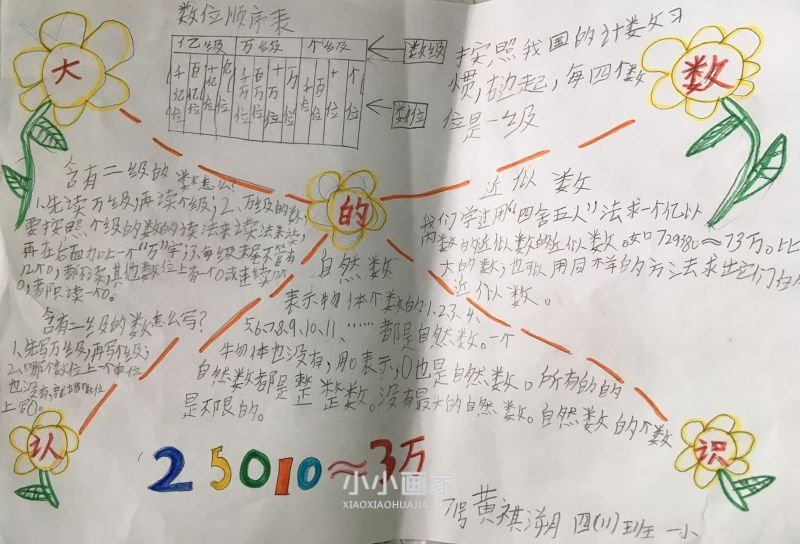 数位顺序表
亿级 万级 个级
数级
千亿位 百亿位 十亿位 亿位 千万位 百万位 十万位 万位 千位 百位 十位 个位
数位
按照我国的计数习
惯,右边起,每四个数
位是一级
大
数
的
认
识
含有二级的数怎么
1.先读万级,再读个级;2.万级的数,
要按照个级的数的读法来读,
再在后面加上一个"万"字;3.每级末尾不管有
几个0,都不读,其他数位上有一个0或连续几个
0,都只读一个0。
含有二级的数怎么写?
1.先写万级,再写个级;
2.哪个数位上一个单位
也没有,就在那个数位
上写0。
近似数
我们学过用"四舍五入"法求一个亿以
内数的近似数的近似数。如729380≈73万。比
大的数,也可以用同样的方法求出它们的
近似数。
自然数
表示物体个数的1.2.3.4、
5.6.7.8.9.10.11、……都是自然数。一个
物体也没有,用0表示,0也是自然数。所有的的
自然数都是整 整数。没有最大的自然数。自然数的个数
是不限的。
25010≈3万
小小画家
XIAOXIAOHUAJIA
7号 黄祺溯 四(1)班 一小